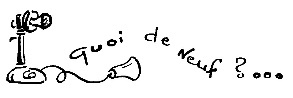 Quoi de Neuf ?...